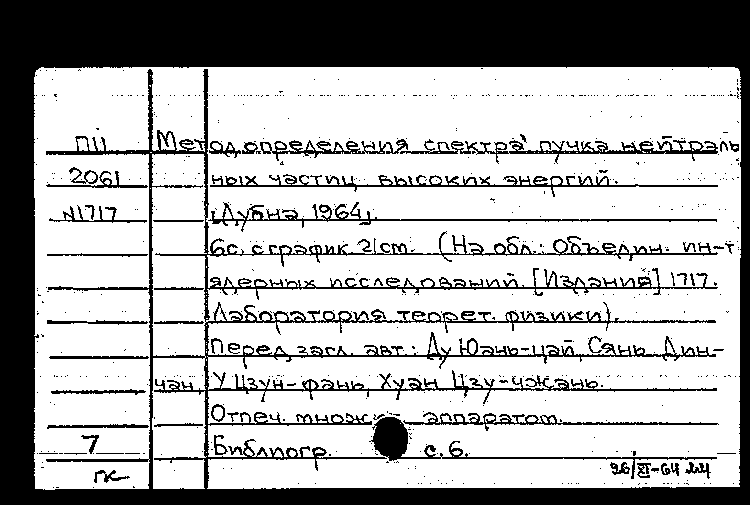 П11 Метод определения спектра пучка нейтраль
2061 ных частиц высоких энергий.
N1717 [Дубна, 1964].
6с. с график. 21см. (На обл.: Объедин. ин-т
ядерных исследований. [Издание] 1717.
Лаборатория теорет. физики).
Перед загл. авт.: Ду Юань-цай, Сянь Дин-
чан, У Цзун-фань, Хуан Цзу-чжань.
Отпеч. множит. аппаратом.
7 Библиогр. с. 6.
26/XI-64